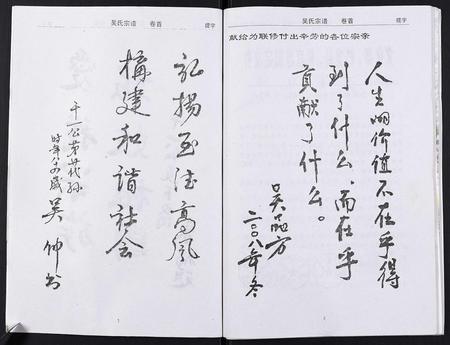 吴氏宗谱 卷首
题字
弘扬至德高风
構建和谐社会
千一公第廿代孙
时年八十四岁
吴仲書
吴氏宗谱 卷首
题字
献给为联修付出辛劳的各位宗亲
人生的价值不在乎得
到了什么，而在乎
贡献了什么。
吴品方
二〇〇八年冬